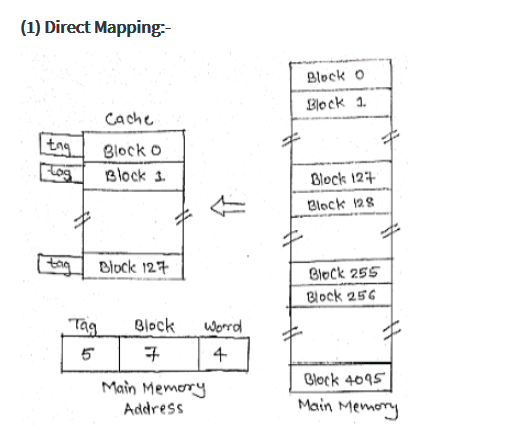 (1) Direct Mapping:-
Cache
tag
Block 0
tag
Block 1
tag
Block 127
Block 0
Block 1
Block 127
Block 128
Block 255
Block 256
Block 4095
Main Memory
Tag Block Word
5 7 4
Main Memory
Address